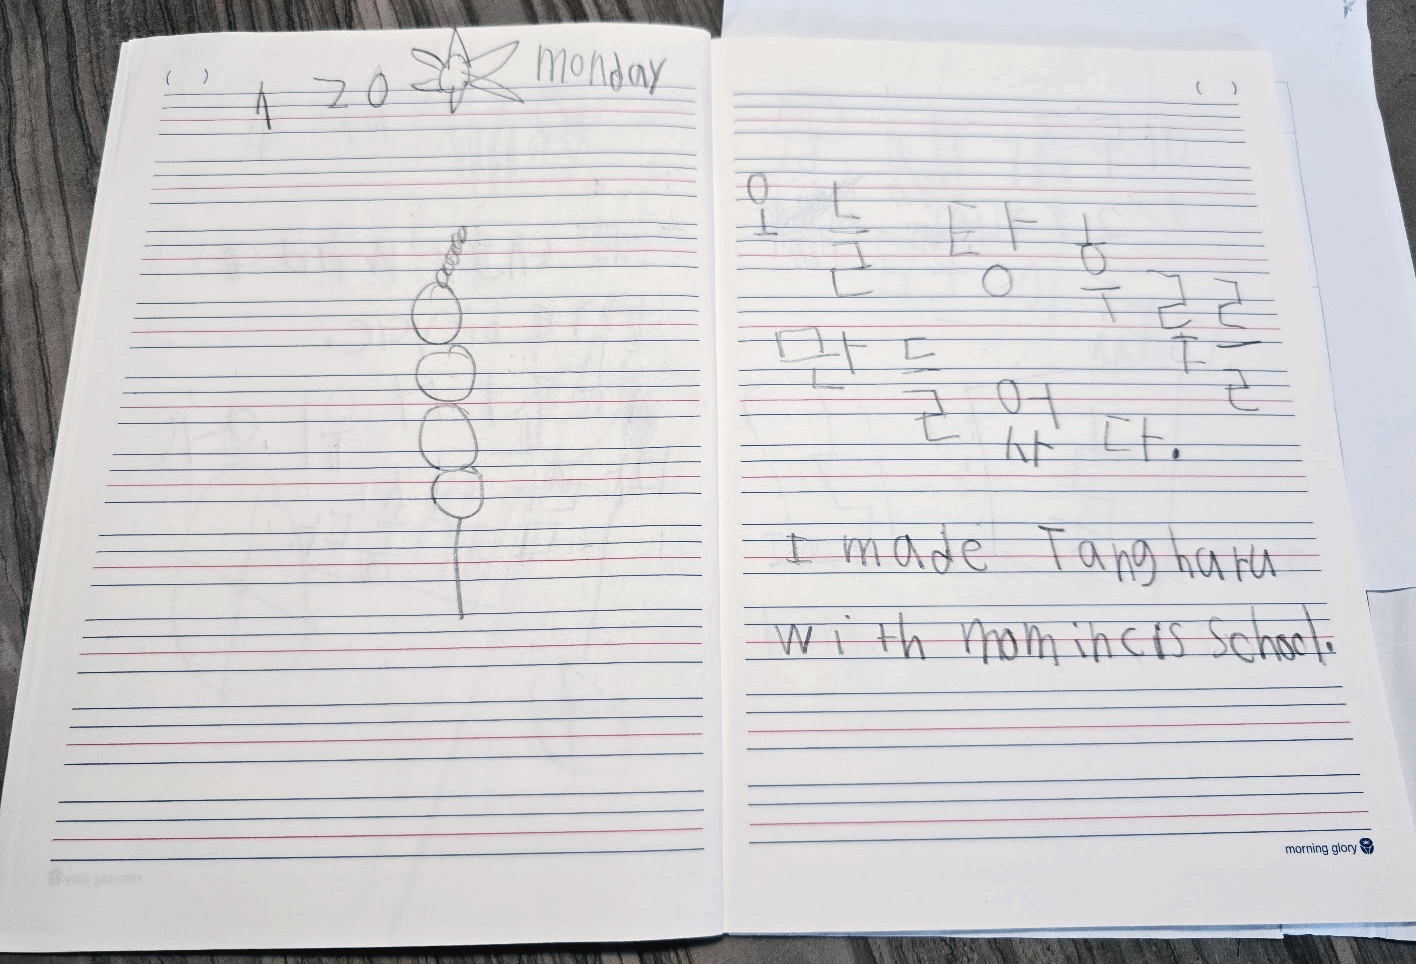 ( )
1 20 monday
( )
오늘 탕후루를
만들었다.
I made Tanghuru
with momincis school.
morning glory